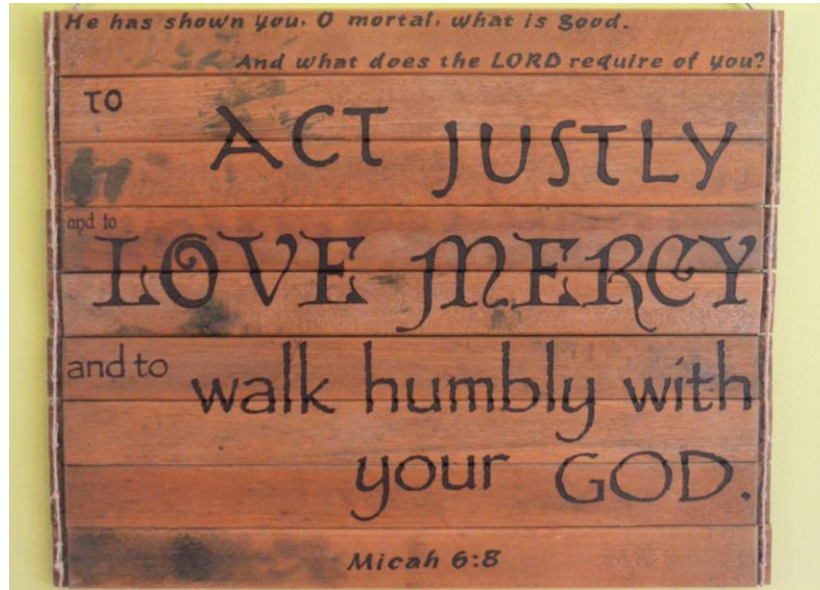 He has shown you, O mortal, what is good.
And what does the LORD require of you?
TO ACT JUSTLY
and to
LOVE MERCY
and to walk humbly with
your GOD.
Micah 6:8